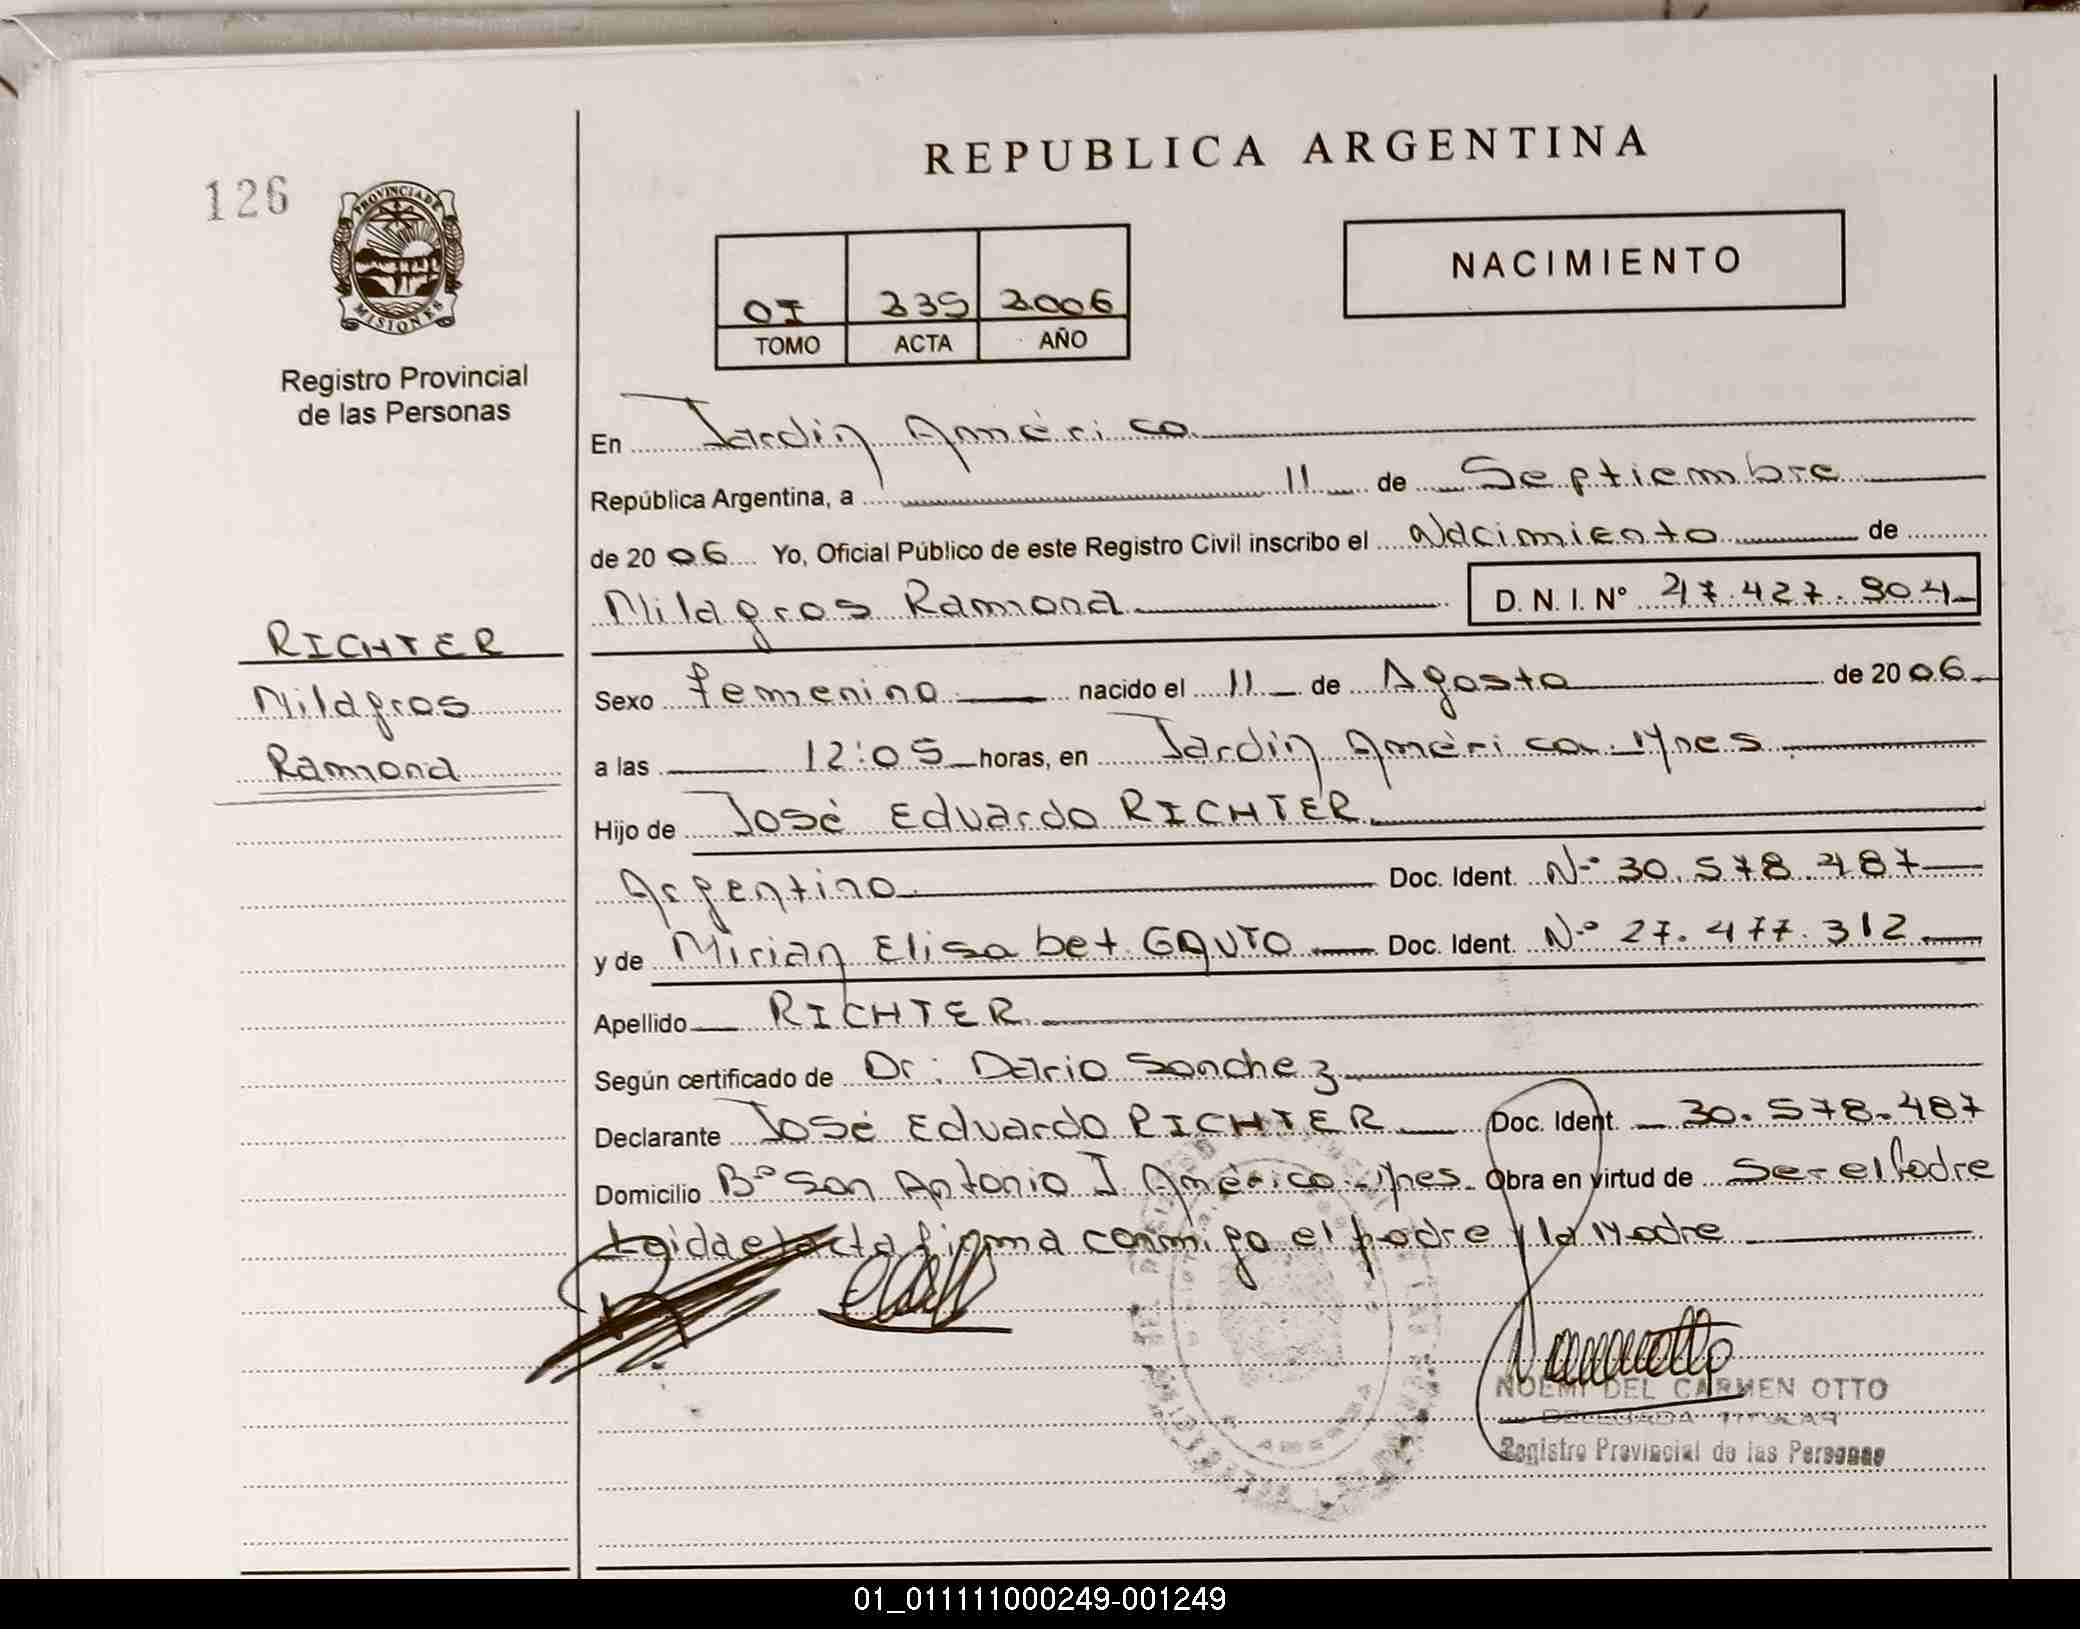 REPUBLICA ARGENTINA
126
PROVINCIA DE
MISIONES
Registro Provincial
de las Personas
NACIMIENTO
OI 235 2006
TOMO ACTA AÑO
En Jardín América
República Argentina, a 11 de Septiembre
de 2006 Yo, Oficial Público de este Registro Civil inscribo el Nacimiento de
Milagros Ramona D. N. I. Nº 47.427.904
RICHTER
Milagros
Ramona
Sexo femenino nacido el 11 de Agosto de 2006
a las 12:05 horas, en Jardín América Mnes
Hijo de José Eduardo RICHTER
Argentino Doc. Ident. Nº 30.578.487
y de Mirian Elisabet GAUTO Doc. Ident. Nº 27.477.312
Apellido RICHTER
Según certificado de Dr: Dario Sanchez
Declarante José Eduardo RICHTER Doc. Ident. 30.578.487
Domicilio Bº San Antonio J. América Mnes. Obra en virtud de Ser el Padre
Leida el acta firma conmigo el padre y la Madre
NOEMI DEL CARMEN OTTO
DELEGADA TITULAR
Registro Provincial de las Personas
01_011111000249-001249